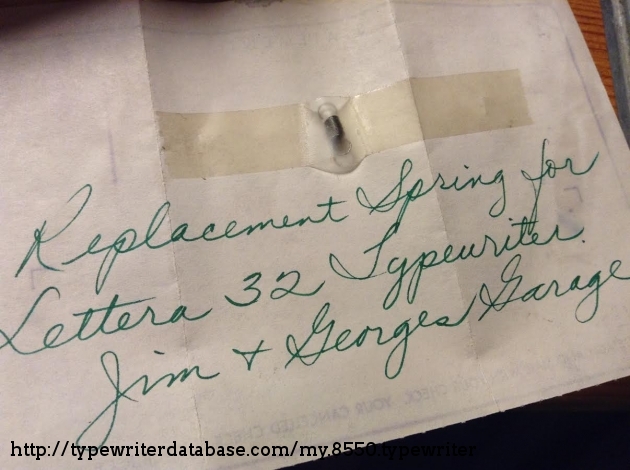 Replacement Spring for
Lettera 32 Typewriter.
Jim + Georges Garage
YOUR CANCELLED
http://typewriterdatabase.com/my.8550.typewriter